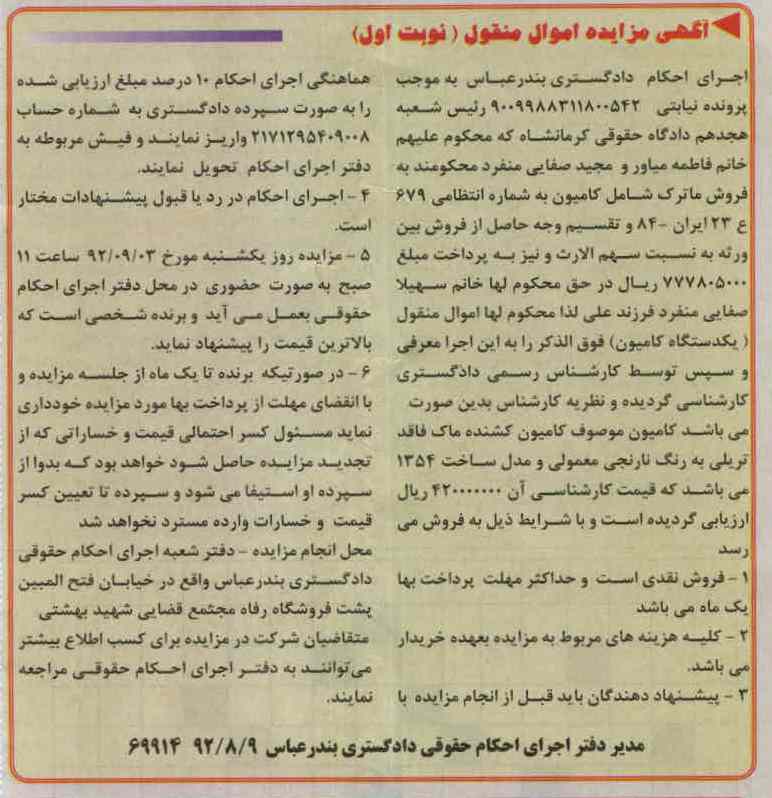 آگهی مزایده اموال منقول ( نوبت اول)
اجرای احکام دادگستری بندرعباس به موجب
پرونده نیابتی ۹۰۰۹۹۸۸۳۱۱۸۰۰۵۴۲ رئیس شعبه
هجدهم دادگاه حقوقی کرمانشاه که محکوم علیهم
خانم فاطمه میاور و مجید صفایی منفرد محکومند به
فروش ماترک شامل کامیون به شماره انتظامی ۶۷۹
ع ۲۳ ایران -۸۴ و تقسیم وجه حاصل از فروش بین
ورثه به نسبت سهم الارث و نیز به پرداخت مبلغ
۷۷۷۸۰۵۰۰۰ ریال در حق محکوم لها خانم سهیلا
صفایی منفرد فرزند علی لذا محکوم لها اموال منقول
( یکدستگاه کامیون) فوق الذکر را به این اجرا معرفی
و سپس توسط کارشناس رسمی دادگستری
کارشناسی گردیده و نظریه کارشناس بدین صورت
می باشد کامیون موصوف کامیون کشنده ماک فاقد
تریلی به رنگ نارنجی معمولی و مدل ساخت ۱۳۵۴
می باشد که قیمت کارشناسی آن ۴۲۰۰۰۰۰۰۰ ریال
ارزیابی گردیده است و با شرایط ذیل به فروش می
رسد
۱ - فروش نقدی است و حداکثر مهلت پرداخت بها
یک ماه می باشد
۲ - کلیه هزینه های مربوط به مزایده بعهده خریدار
می باشد.
۳ - پیشنهاد دهندگان باید قبل از انجام مزایده با
هماهنگی اجرای احکام ۱۰ درصد مبلغ ارزیابی شده
را به صورت سپرده دادگستری به شماره حساب
۲۱۷۱۲۹۵۴۰۹۰۰۸ واریز نمایند و فیش مربوطه به
دفتر اجرای احکام تحویل نمایند.
۴ - اجرای احکام در رد یا قبول پیشنهادات مختار
است.
۵ - مزایده روز یکشنبه مورخ ۹۲/۰۹/۰۳ ساعت ۱۱
صبح به صورت حضوری در محل دفتر اجرای احکام
حقوقی بعمل می آید و برنده شخصی است که
بالاترین قیمت را پیشنهاد نماید.
۶ - در صورتیکه برنده تا یک ماه از جلسه مزایده و
با انقضای مهلت از پرداخت بها مورد مزایده خودداری
نماید مسئول کسر احتمالی قیمت و خساراتی که از
تجدید مزایده حاصل شود خواهد بود که بدوا از
سپرده او استیفا می شود و سپرده تا تعیین کسر
قیمت و خسارات وارده مسترد نخواهد شد
محل انجام مزایده - دفتر شعبه اجرای احکام حقوقی
دادگستری بندرعباس واقع در خیابان فتح المبین
پشت فروشگاه رفاه مجتمع قضایی شهید بهشتی
متقاضیان شرکت در مزایده برای کسب اطلاع بیشتر
می‌توانند به دفتر اجرای احکام حقوقی مراجعه
نمایند.
مدیر دفتر اجرای احکام حقوقی دادگستری بندرعباس ۹۲/۸/۹ ۶۹۹۱۴